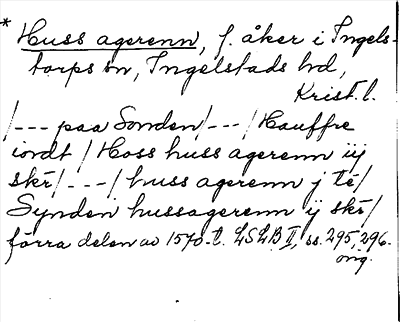 * Huss agerenn, f. åker i Ingels-
torps sn, Ingelstads hd,
Krist. l.
/--- paa Sonden/---/Hauffre
iordt / Hoss huss agerenn iij
skr/---/huss agerenn j te/
Synden hussagerenn ij skr/
förra delen av 1570-t. LSLB II, ss. 295, 296.
org.